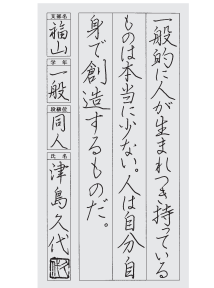 一般的に人が生まれつき持っている
ものは本当に少ない。人は自分自
身で創造するものだ。
支部名 福山 学年 一般 段級位 同人 氏名 津島久代